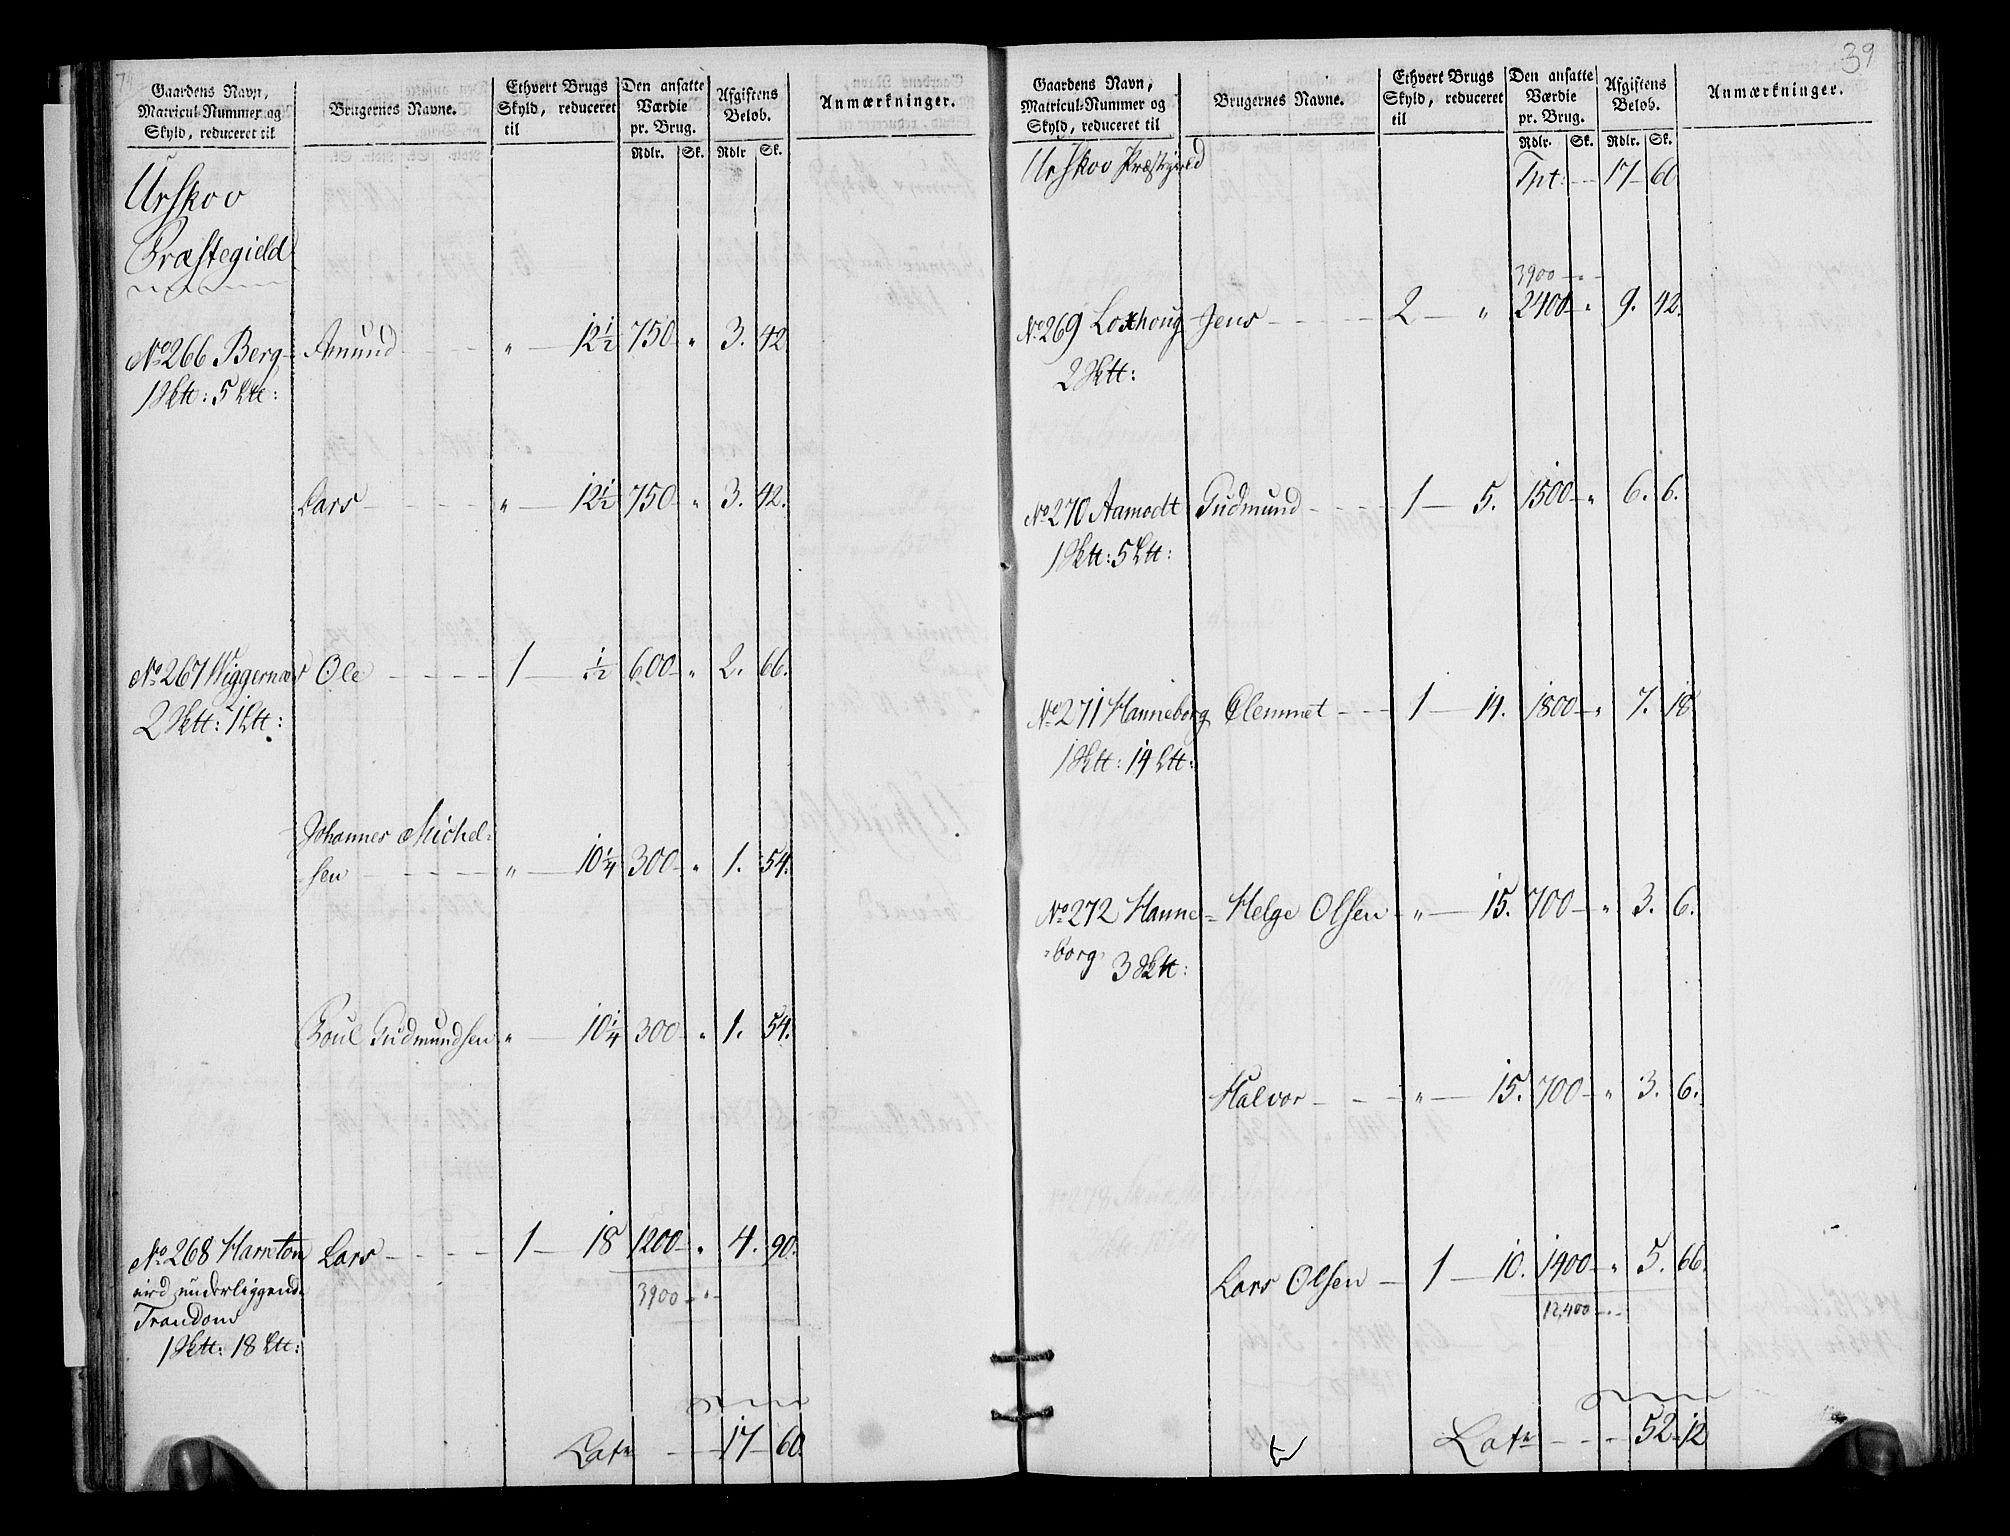 Gaardens Navn, Matricul-Nummer og Skyld, reduceret til | Brugernes Navne. | Ethvert Brugs Skyld, reduceret til | Den ansatte Værdie pr. Brug. | Afgiftens Beløb. | Anmærkninger.
Rdlr. Sk. Rdlr Sk.
Urskov
Præstegield
No 266 Berg Amund " 12 1/2 750 " 3. 42.
1 Skt: 5 Ltt:
Lars " 12 1/2 750 " 3. 42.
No 267 Wiggernæs Ole 1 1/2 600 " 2. 66.
2 Sktt: 1 Ltt:
Johannes Michel=
sen " 10 1/4 300 " 1. 54.
Poul Gudmundsen " 10 1/4 300 " 1. 54.
No 268 Harnton Lars 1 18 1200 " 4. 90.
und underliggende 3900
Trandom
1 Sktt: 18 Ltt:
Latr 17 60.
39
Gaardens Navn, Matricul-Nummer og Skyld, reduceret til | Brugernes Navne. | Ethvert Brugs Skyld, reduceret til | Den ansatte Værdie pr. Brug. | Afgiftens Beløb. | Anmærkninger.
Rdlr. Sk. Rdlr. Sk.
Urskov Præstgield Tpt: 17 60
3900
No 269 Loxhoug Jens 2 " 2400 " 9. 42.
2 Sktt:
No 270 Aamodt Gudmund 1 5. 1500 " 6. 6.
1 Sktt: 5 Ltt:
No 271 Hanneborg Clemmet 1 14. 1800 " 7. 18
1 Sktt: 14 Ltt:
No 272 Hanne= Helge Olsen " 15. 700 " 3. 6.
=borg 3 Sktt:
Halvor " 15. 700 " 3. 6.
Lars Olsen 1 10. 1400 " 5. 66.
12,400
Latr 52 12